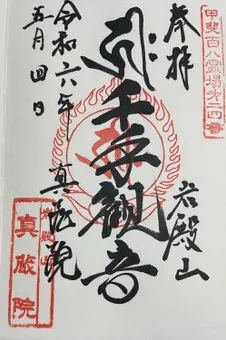 甲斐百八霊場第二四番
奉拝
岩殿山
千手観音
真蔵院
令和六年
五月四日
真蔵院